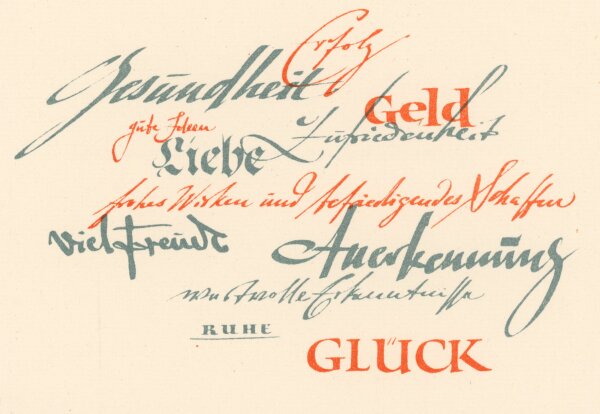 Erfolg
Gesundheit
Geld
gute Ideen
Zufriedenheit
Liebe
frohes Wirken und befriedigendes Schaffen
viel Freude
Anerkennung
wertvolle Erkenntnisse
RUHE
GLÜCK